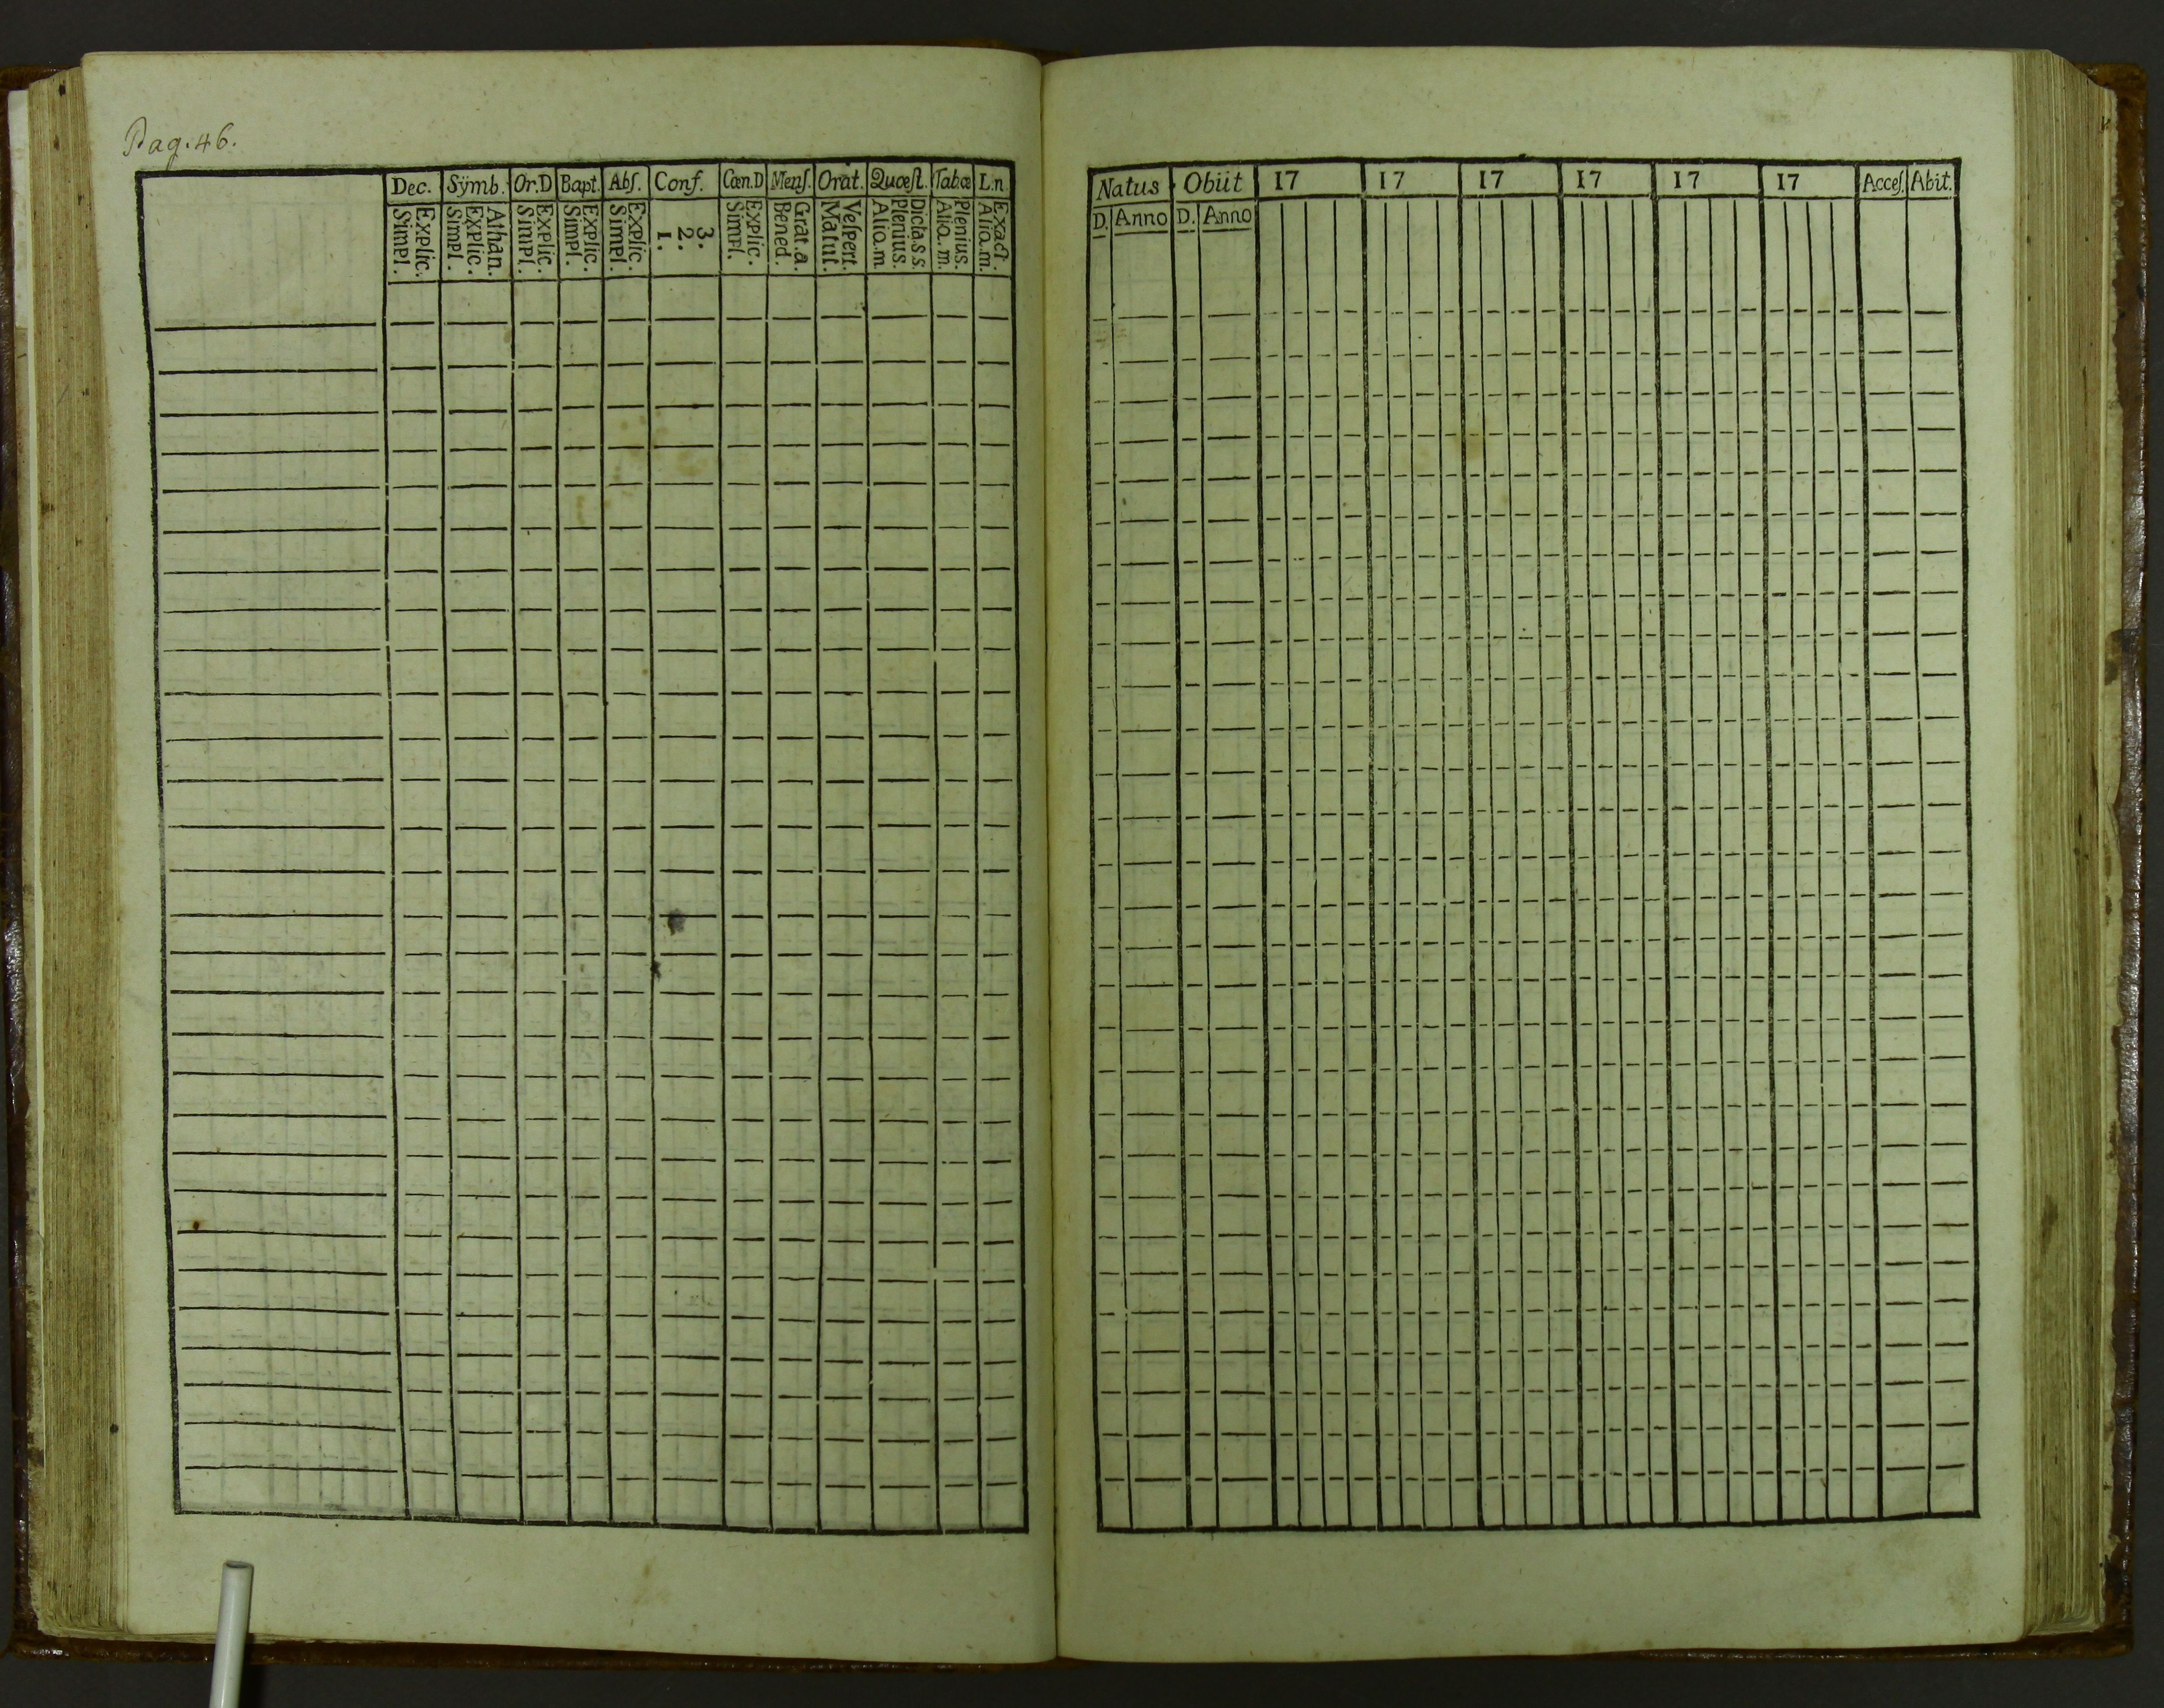 Pag. 46.
Dec. Sÿmb. Or.D Bapt. Abſ. Conf. Cœn.D Menſ. Orat. Quœſt. Tabœ L.n.
Explic.
Simpl.
Athan.
Explic.
Simpl.
Explic.
Simpl.
Explic.
Simpl.
Explic.
Simpl.
3.
2.
1.
Explic.
Simpl.
Grat. a.
Bened.
Veſpert.
Matut.
Dicta.s s.
Plenius.
Alio.m
Plenius.
Alio.m.
Exact.
Alio.m.
Natus Obiit 17 17 17 17 17 17 Acceſ. Abit.
D. Anno D. Anno